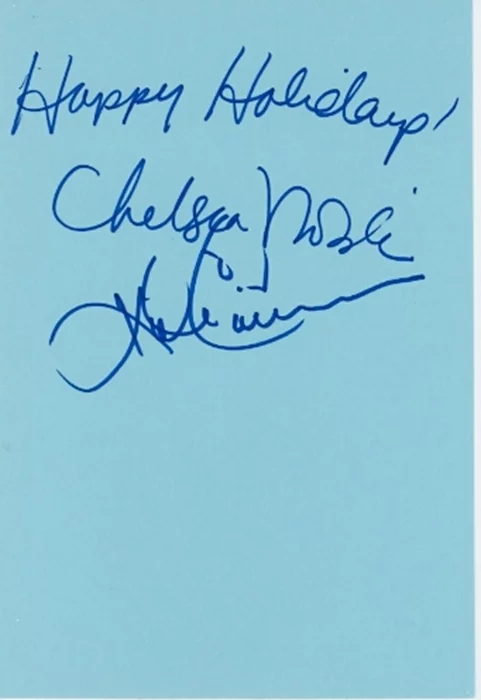 Happy Holidays!
Chelsea Noble